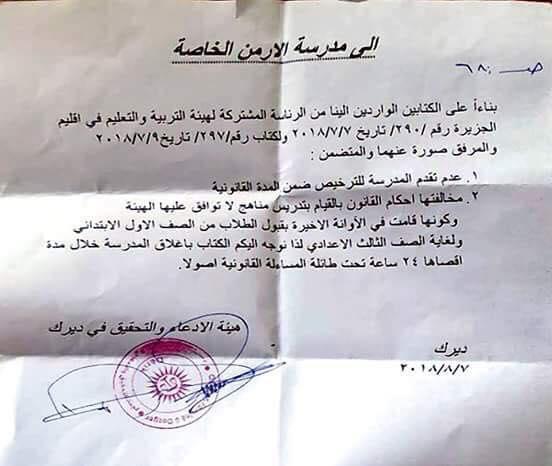 الى مدرسة الارمن الخاصة
صـ ٦٨٠
بناءاً على الكتابين الواردين الينا من الرئاسة المشتركة لهيئة التربية والتعليم في اقليم
الجزيرة رقم /٢٩٠/ تاريخ ٢٠١٨/٧/٧ ولكتاب رقم/٢٩٧/ تاريخ٢٠١٨/٧/٩
والمرفق صورة عنهما والمتضمن :
١. عدم تقدم المدرسة للترخيص ضمن المدة القانونية
٢. مخالفتها احكام القانون بالقيام بتدريس مناهج لا توافق عليها الهيئة
وكونها قامت في الآونة الاخيرة بقبول الطلاب من الصف الاول الابتدائي
ولغاية الصف الثالث الاعدادي لذا نوجه اليكم الكتاب باغلاق المدرسة خلال مدة
اقصاها ٢٤ ساعة تحت طائلة المساءلة القانونية اصولا.
هيئة الادعاء والتحقيق في ديرك
ديرك
٢٠١٨/٨/٧